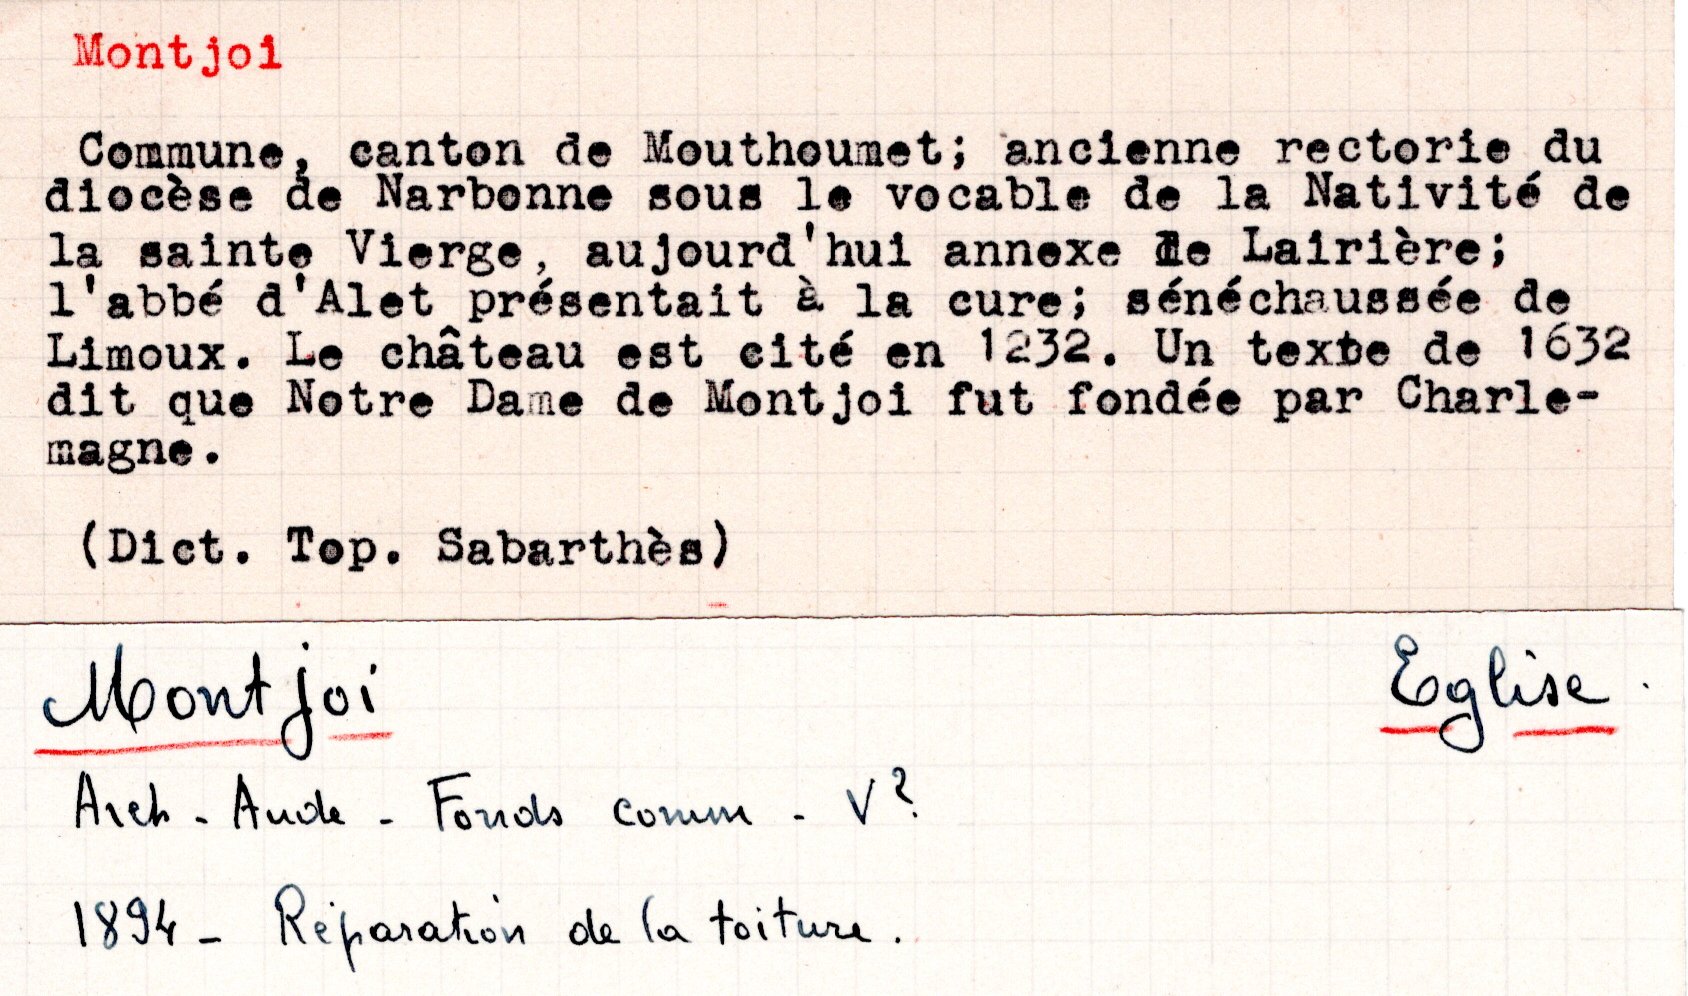 Montjoi
Commune, canton de Mouthoumet; ancienne rectorie du
diocèse de Narbonne sous le vocable de la Nativité de
la sainte Vierge, aujourd'hui annexe de Lairière;
l'abbé d'Alet présentait à la cure; sénéchaussée de
Limoux. Le château est cité en 1232. Un texte de 1632
dit que Notre Dame de Montjoi fut fondée par Charle-
magne.
(Dict. Top. Sabarthès)
Montjoi Eglise.
Arch - Aude - Fonds comm - V?
1894 - Réparation de la toiture.